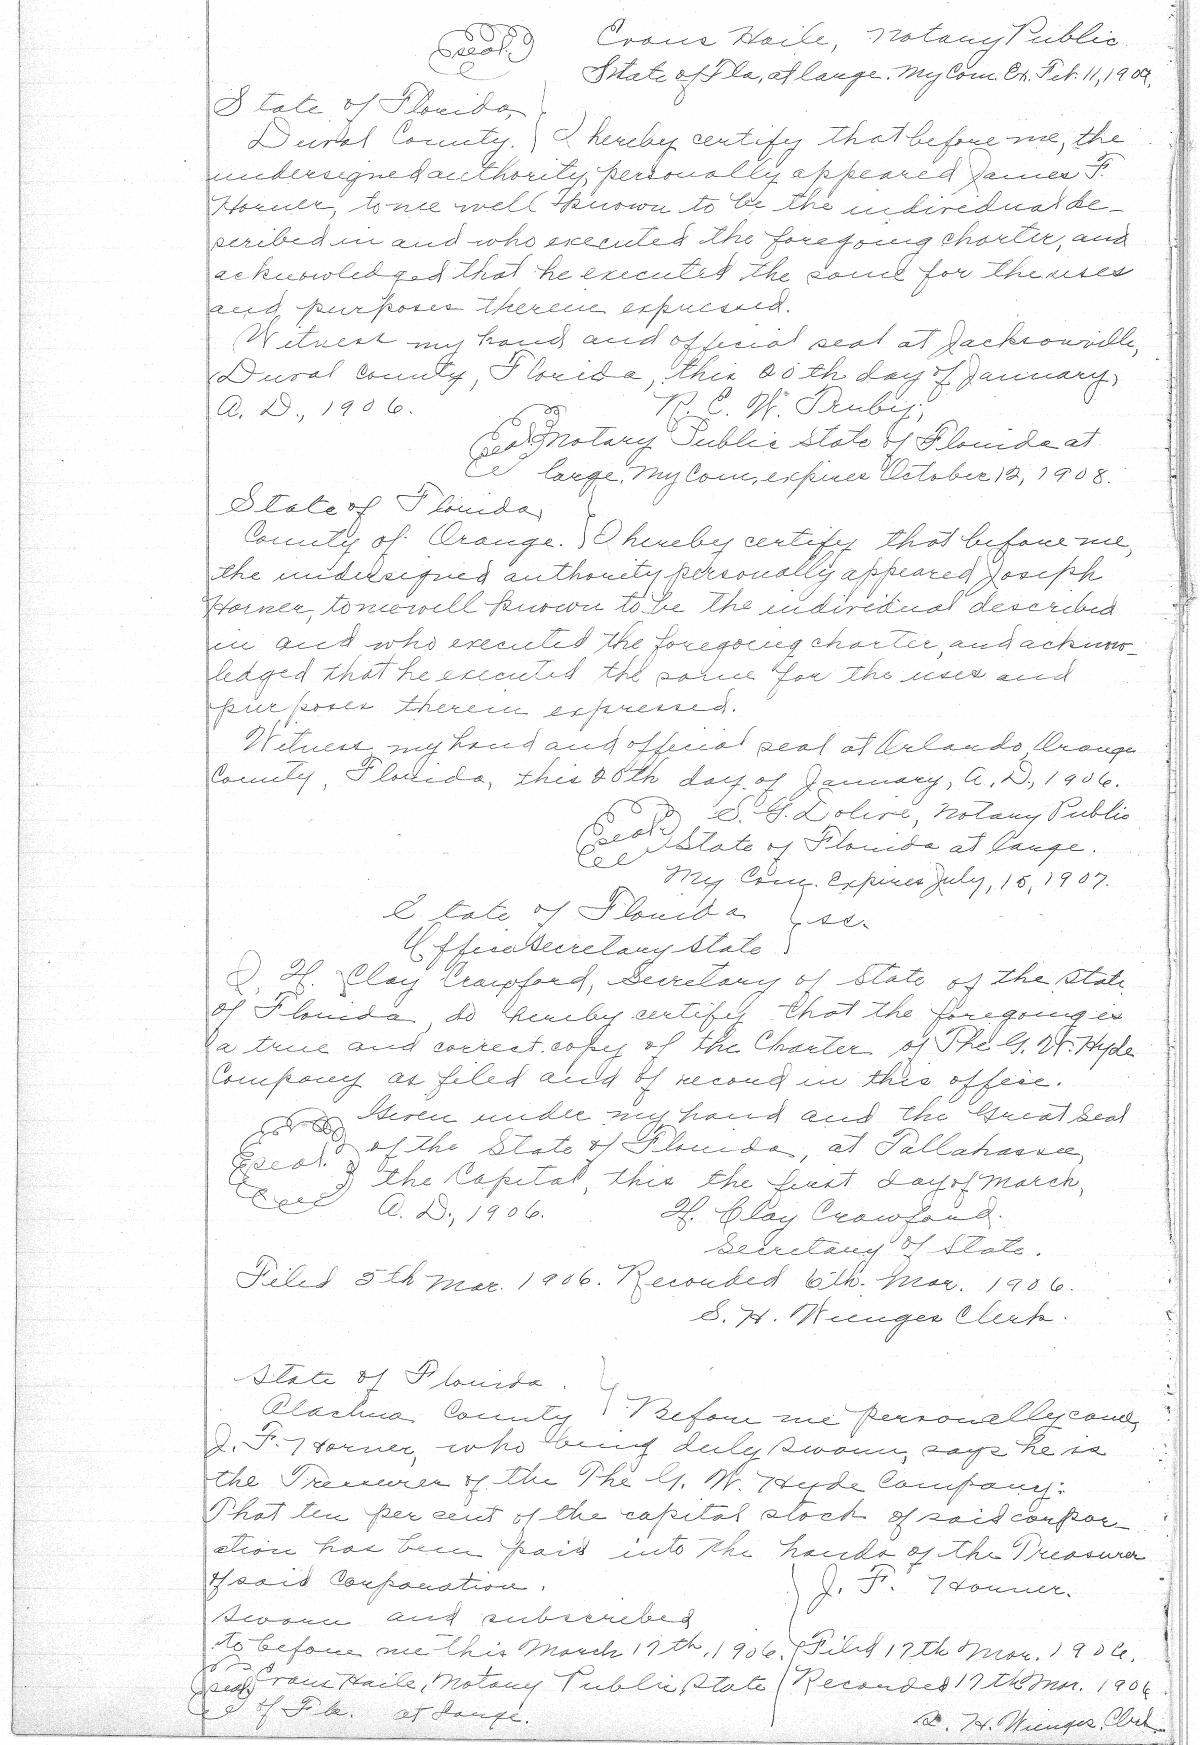 Seal. Evans Haile, Notary Public
State of Fla, at large. My Com. Ex. Feb. 11, 1909.
State of Florida,
Duval County. } I hereby certify that before me, the
undersigned authority, personally appeared James F.
Horner, to me well known to be the individual de-
scribed in and who executed the foregoing charter, and
acknowledged that he executed the same for the uses
and purposes therein expressed.
Witness my hand and official seal at Jacksonville,
Duval County, Florida, this 20th day of January,
A. D., 1906. R. C. W. Truby,
Seal Notary Public State of Florida at
large. My Com. expires October 12, 1908.
State of Florida,
County of Orange. } I hereby certify that before me,
the undersigned authority personally appeared Joseph
Horner, to me well known to be the individual described
in and who executed the foregoing charter, and acknow-
ledged that he executed the same for the uses and
purposes therein expressed.
Witness my hand and official seal at Orlando, Orange
County, Florida, this 20th day of January, A. D., 1906.
S. G. Dolive, Notary Public
Seal State of Florida at large.
My Com. Expires July, 15, 1907.
State of Florida } ss.
Office Secretary State
I, H. Clay Crawford, Secretary of State of the State
of Florida, do hereby certify that the foregoing is
a true and correct copy of the Charter of The G. W. Hyde
Company as filed and of record in this office.
Given under my hand and the Great Seal
Seal. of the State of Florida, at Tallahassee,
the Capital, this the first day of March,
A. D., 1906. H. Clay Crawford.
Secretary of State.
Filed 5th Mar. 1906. Recorded 6th. Mar. 1906.
S. H. Wienges Clerk.
State of Florida.
Alachua County } Before me personally came,
J. F. Horner, who being duly sworn, says he is
the Treasurer of the The G. W. Hyde Company:
That ten per cent of the capital stock of said corpor-
ation has been paid into the hands of the Treasurer
of said Corporation. } J. F. Horner.
Sworn and subscribed
to before me this March 17th, 1906. } Filed 17th Mar. 1906.
Seal Evans Haile, Notary Public, State } Recorded 17th Mar. 1906
of Fla. at large. S. H. Wienges, Clerk